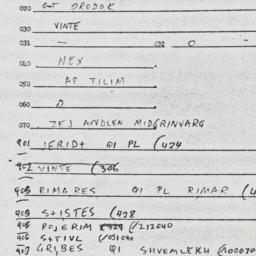 020 GT ORODOK
030 VINTE
031 — 032 O
040 NEX
050 AP TILIM
060 O
070 7EJ ANDLEN MIDGRINVARG
901 JERIDT QI PL (424
902 VINTE (306
903 RIMARES QI PL RIMAR (4
905 S+ISTES (428
906 POJERIM (/212040
906 S+TIVL (/091040
907 GRIBES QI SHVEMLEKH (100070